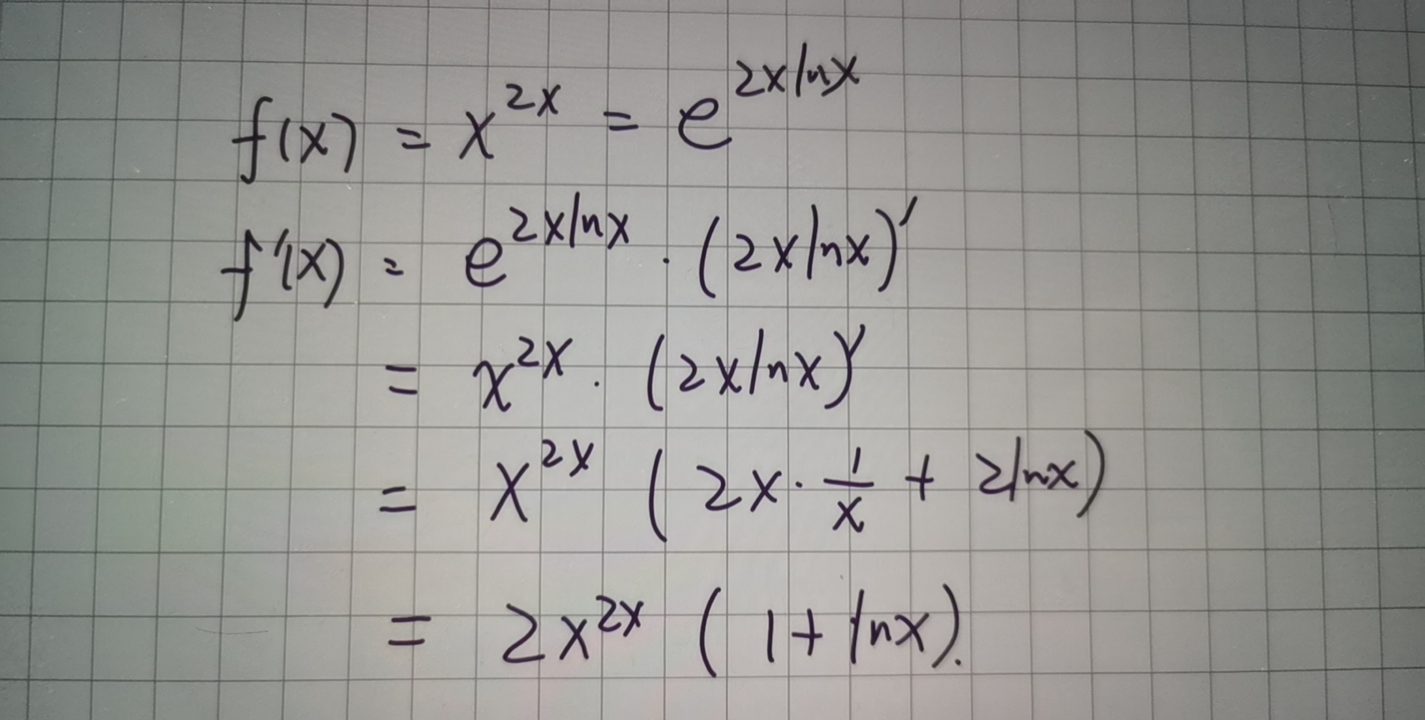 f(x) = x^{2x} = e^{2x ln x}
f'(x) = e^{2x ln x} · (2x ln x)'
= x^{2x} · (2x ln x)'
= x^{2x} (2x · \frac{1}{x} + 2 ln x)
= 2x^{2x} (1 + ln x).